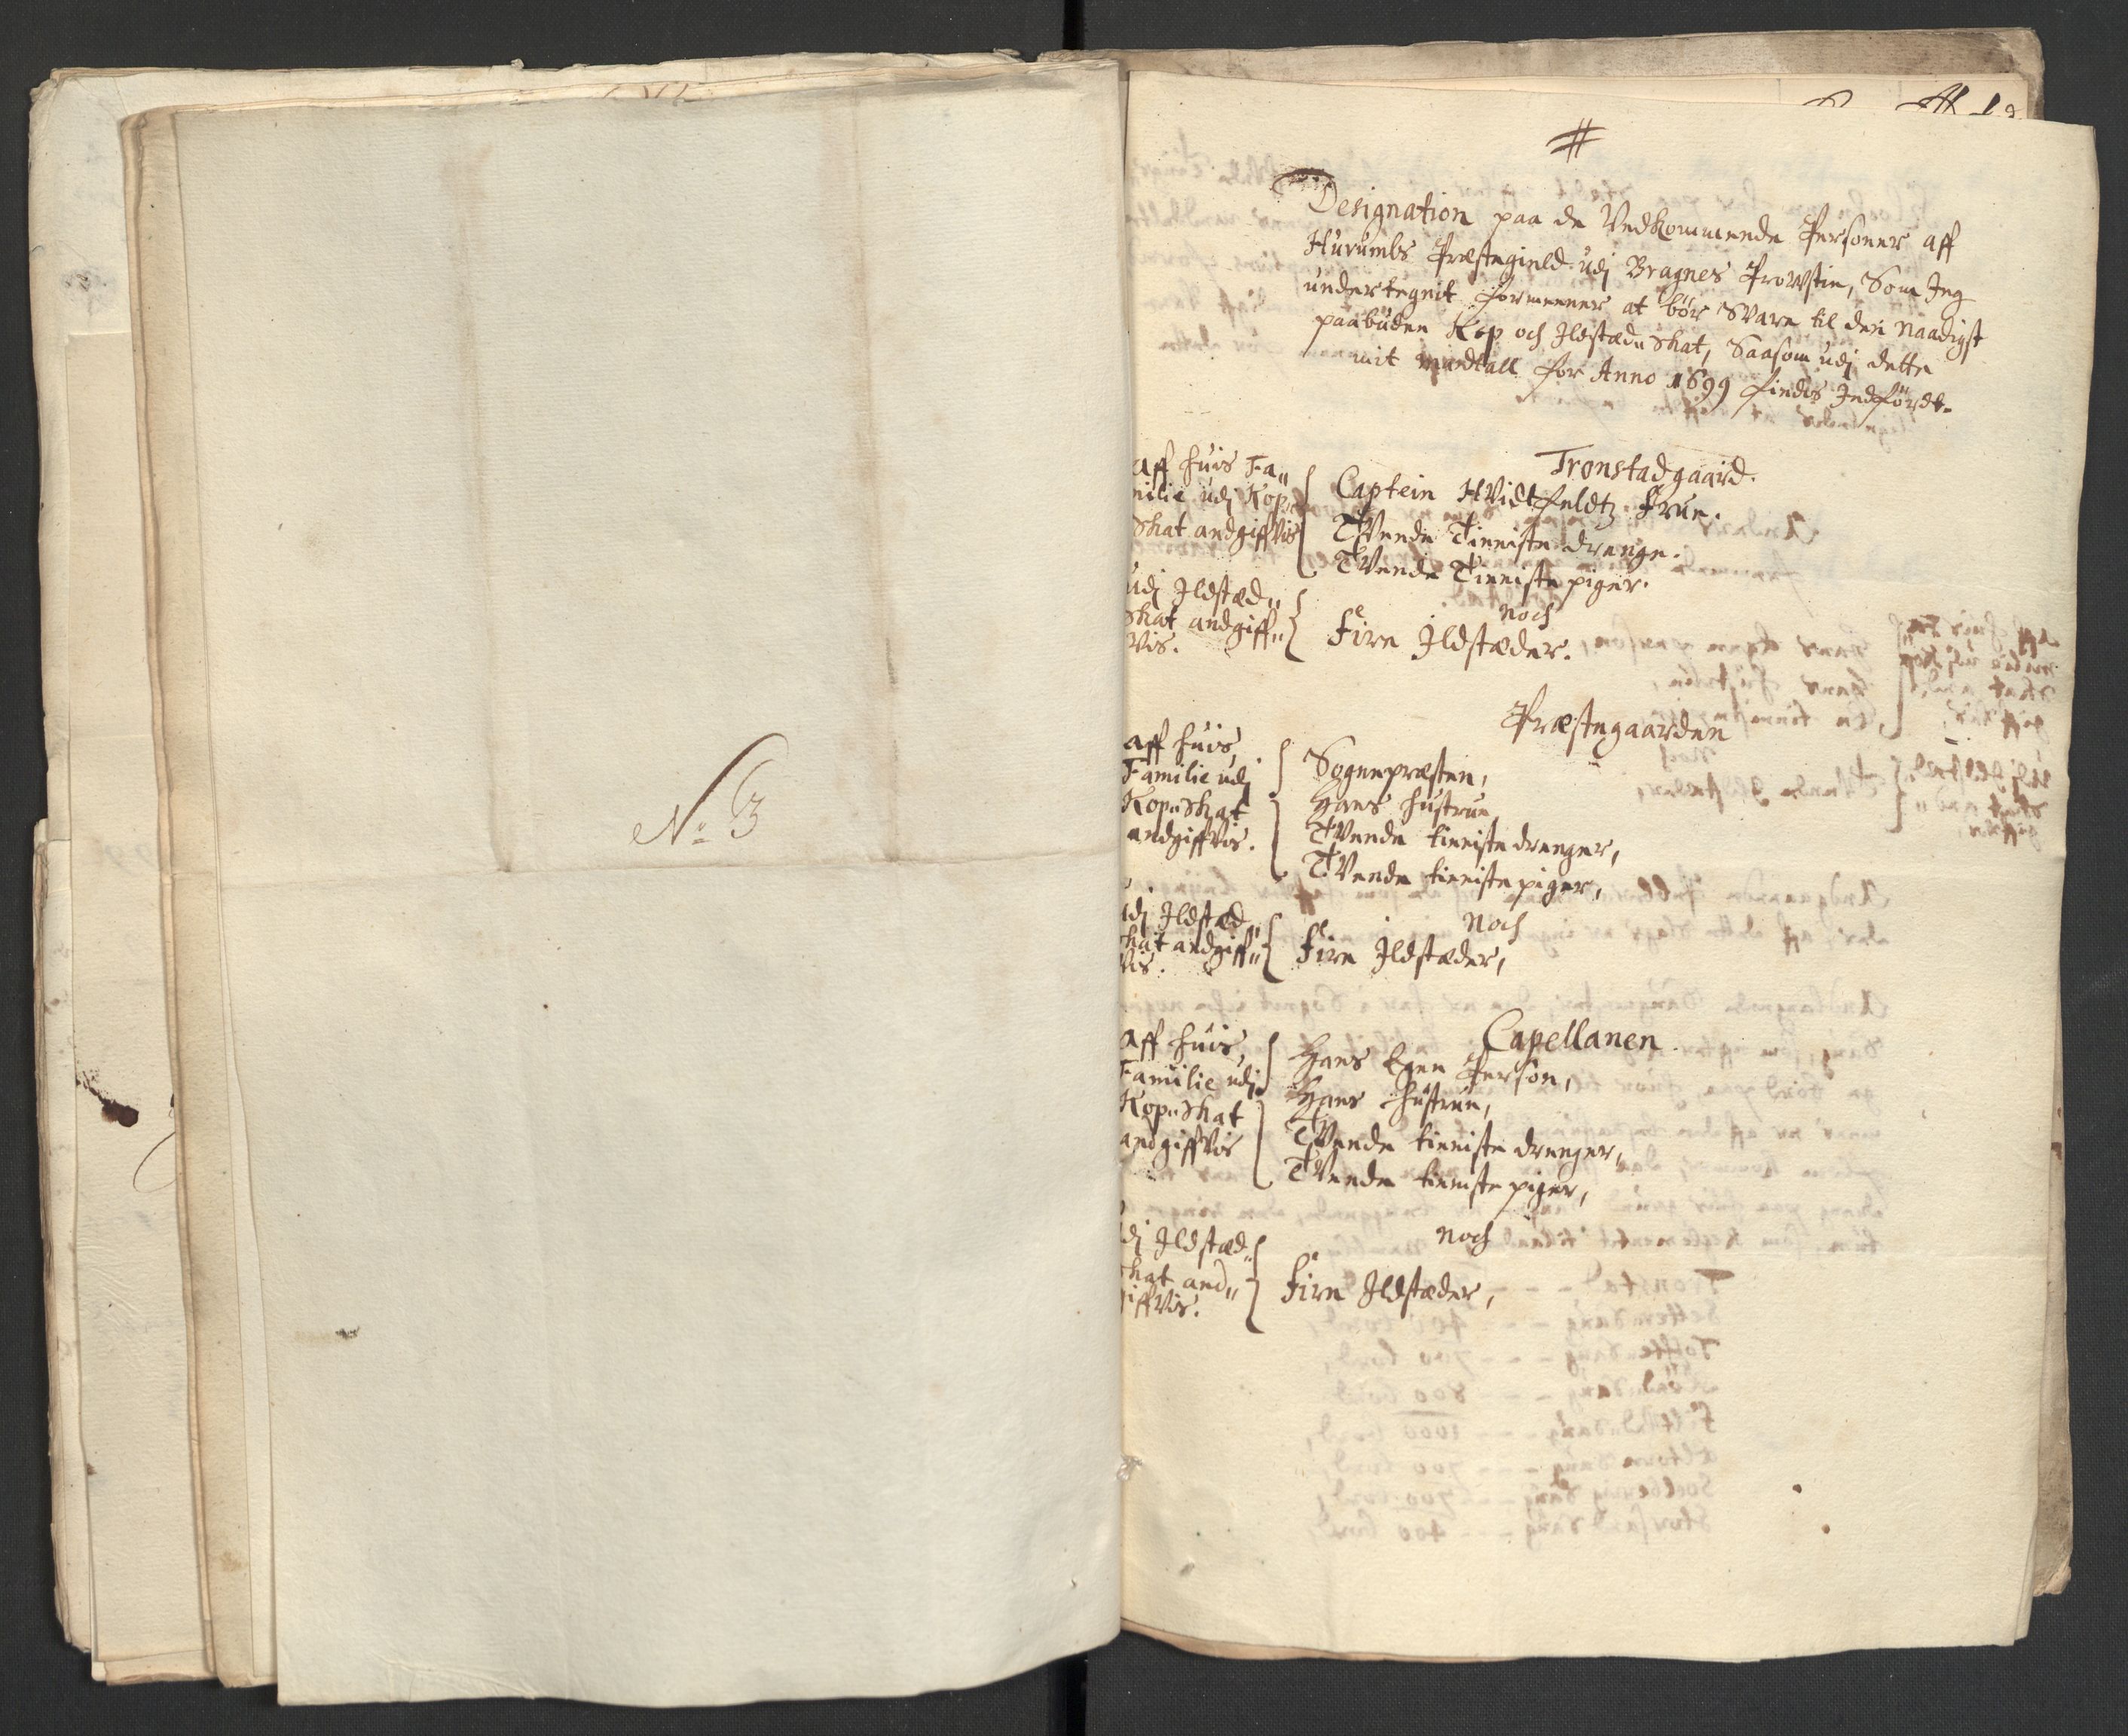 No 3
Designation paa de Vedkommende Personer aff
Hurumbs Præstegield udj Bragnes Prowstie, Som Jeg
undertegnit formeener at bör Svare til den naadigst
paabuden Kop och Ildstæde Skat, Saasom udj dette
mit Mandtall for Anno 1699 findes Indfördt.
Tronstadgaard.
aff huis Fa„
milie udj Kop„
Skat andgiffvis
Captein Hvidtfeldtz Frue.
Tvende Tieniste drenge.
Tvende Tieniste piger.
noch
udj Ildstæd„
Skat andgiff„
vis.
Fire Ildstæder.
Præstegaarden
aff huis
Familie udj
Kop„Skat
andgiffvis.
Sognepræsten,
Hans hustrue
Tvende tieniste drenger,
Tvende tieniste piger,
Noch
udj Ildstæd„
Skat andgiff„
vis.
Fire Ildstæder,
Capellanen.
aff huis
Familie udj
Kop„Skat
andgiffvis
Hans Egen Person,
Hans hustrue,
Tvende tieniste drenger,
Tvende tieniste piger,
noch
udj Ildstæd„
Skat and„
giffvis.
Fire Ildstæder,